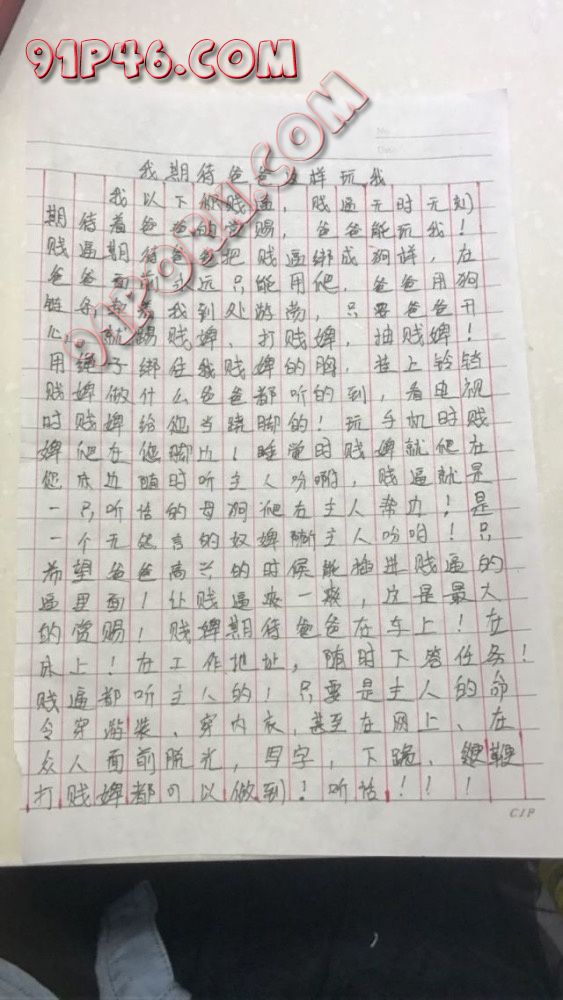 91P46.COM
91PORN.COM
No.
Date
我期待爸爸这样玩我
我以下称贱逼，贱逼无时无刻
期待着爸爸的赏赐，爸爸能玩我！
贱逼期待爸爸把贱逼绑成狗样，在
爸爸面前永远只能用爬，爸爸用狗
链子牵着我到处游荡，只要爸爸开
心。就踢贱婢、打贱婢，抽贱婢！
用绳子绑住我贱婢的胸，挂上铃铛
贱婢做什么爸爸都听的到，看电视
时贱婢给您当绕脚的！玩手机时贱
婢爬在您脚边！睡觉时贱婢就爬在
您床边随时听主人吩咐，贱逼就是
一只听话的母狗爬在主人旁边！是
一个无怨言的奴婢听主人吩咐！只
希望爸爸高兴的时候能插进贱逼的
逼里面！让贱逼爽一爽，这是最大
的赏赐！贱婢期待爸爸在车上！在
床上！在工作地址，随时下答任务！
贱逼都听主人的！只要是主人的命
令穿游装、穿内衣，甚至在网上、在
众人面前脱光，写字，下跪，鞭
打贱婢都可以做到！听话！！！
CIP